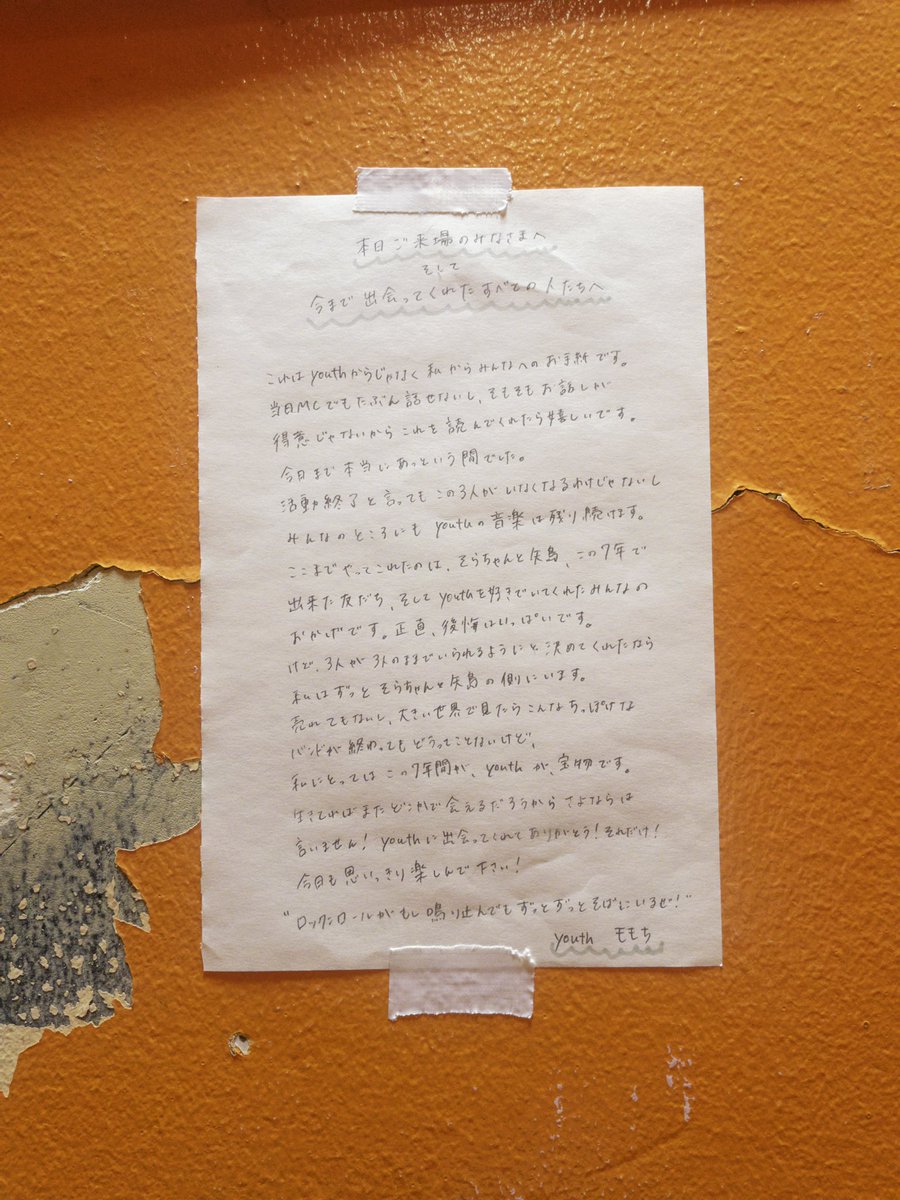 本日ご来場のみなさまへ
そして
今まで出会ってくれたすべての人たちへ
これはyouthからじゃなく私からみんなへのお手紙です。
当日MCでもたぶん話せないし、そもそもお話しが
得意じゃないからこれを読んでくれたら嬉しいです。
今日まで本当にあっという間でした。
活動終了と言ってもこの3人がいなくなるわけじゃないし
みんなのところにもyouthの音楽は残り続けます。
ここまでやってこれたのは、そらちゃんと矢島、この7年で
出来た友だち、そしてyouthを好きでいてくれたみんなの
おかげです。正直、後悔はいっぱいです。
けど、3人が3人のままでいられるようにと決めてくれたなら
私はずっとそらちゃんと矢島の側にいます。
売れてもないし、大きい世界で見たらこんなちっぽけな
バンドが終わってもどうってことないけど、
私にとってはこの7年間が、youthが、宝物です。
生きてればまたどこかで会えるだろうからさよならは
言いません!youthに出会ってくれてありがとう!それだけ!
今日も思いっきり楽しんで下さい!
"ロックンロールがもし鳴り止んでもずっとずっとそばにいるぜ!"
youth ももち